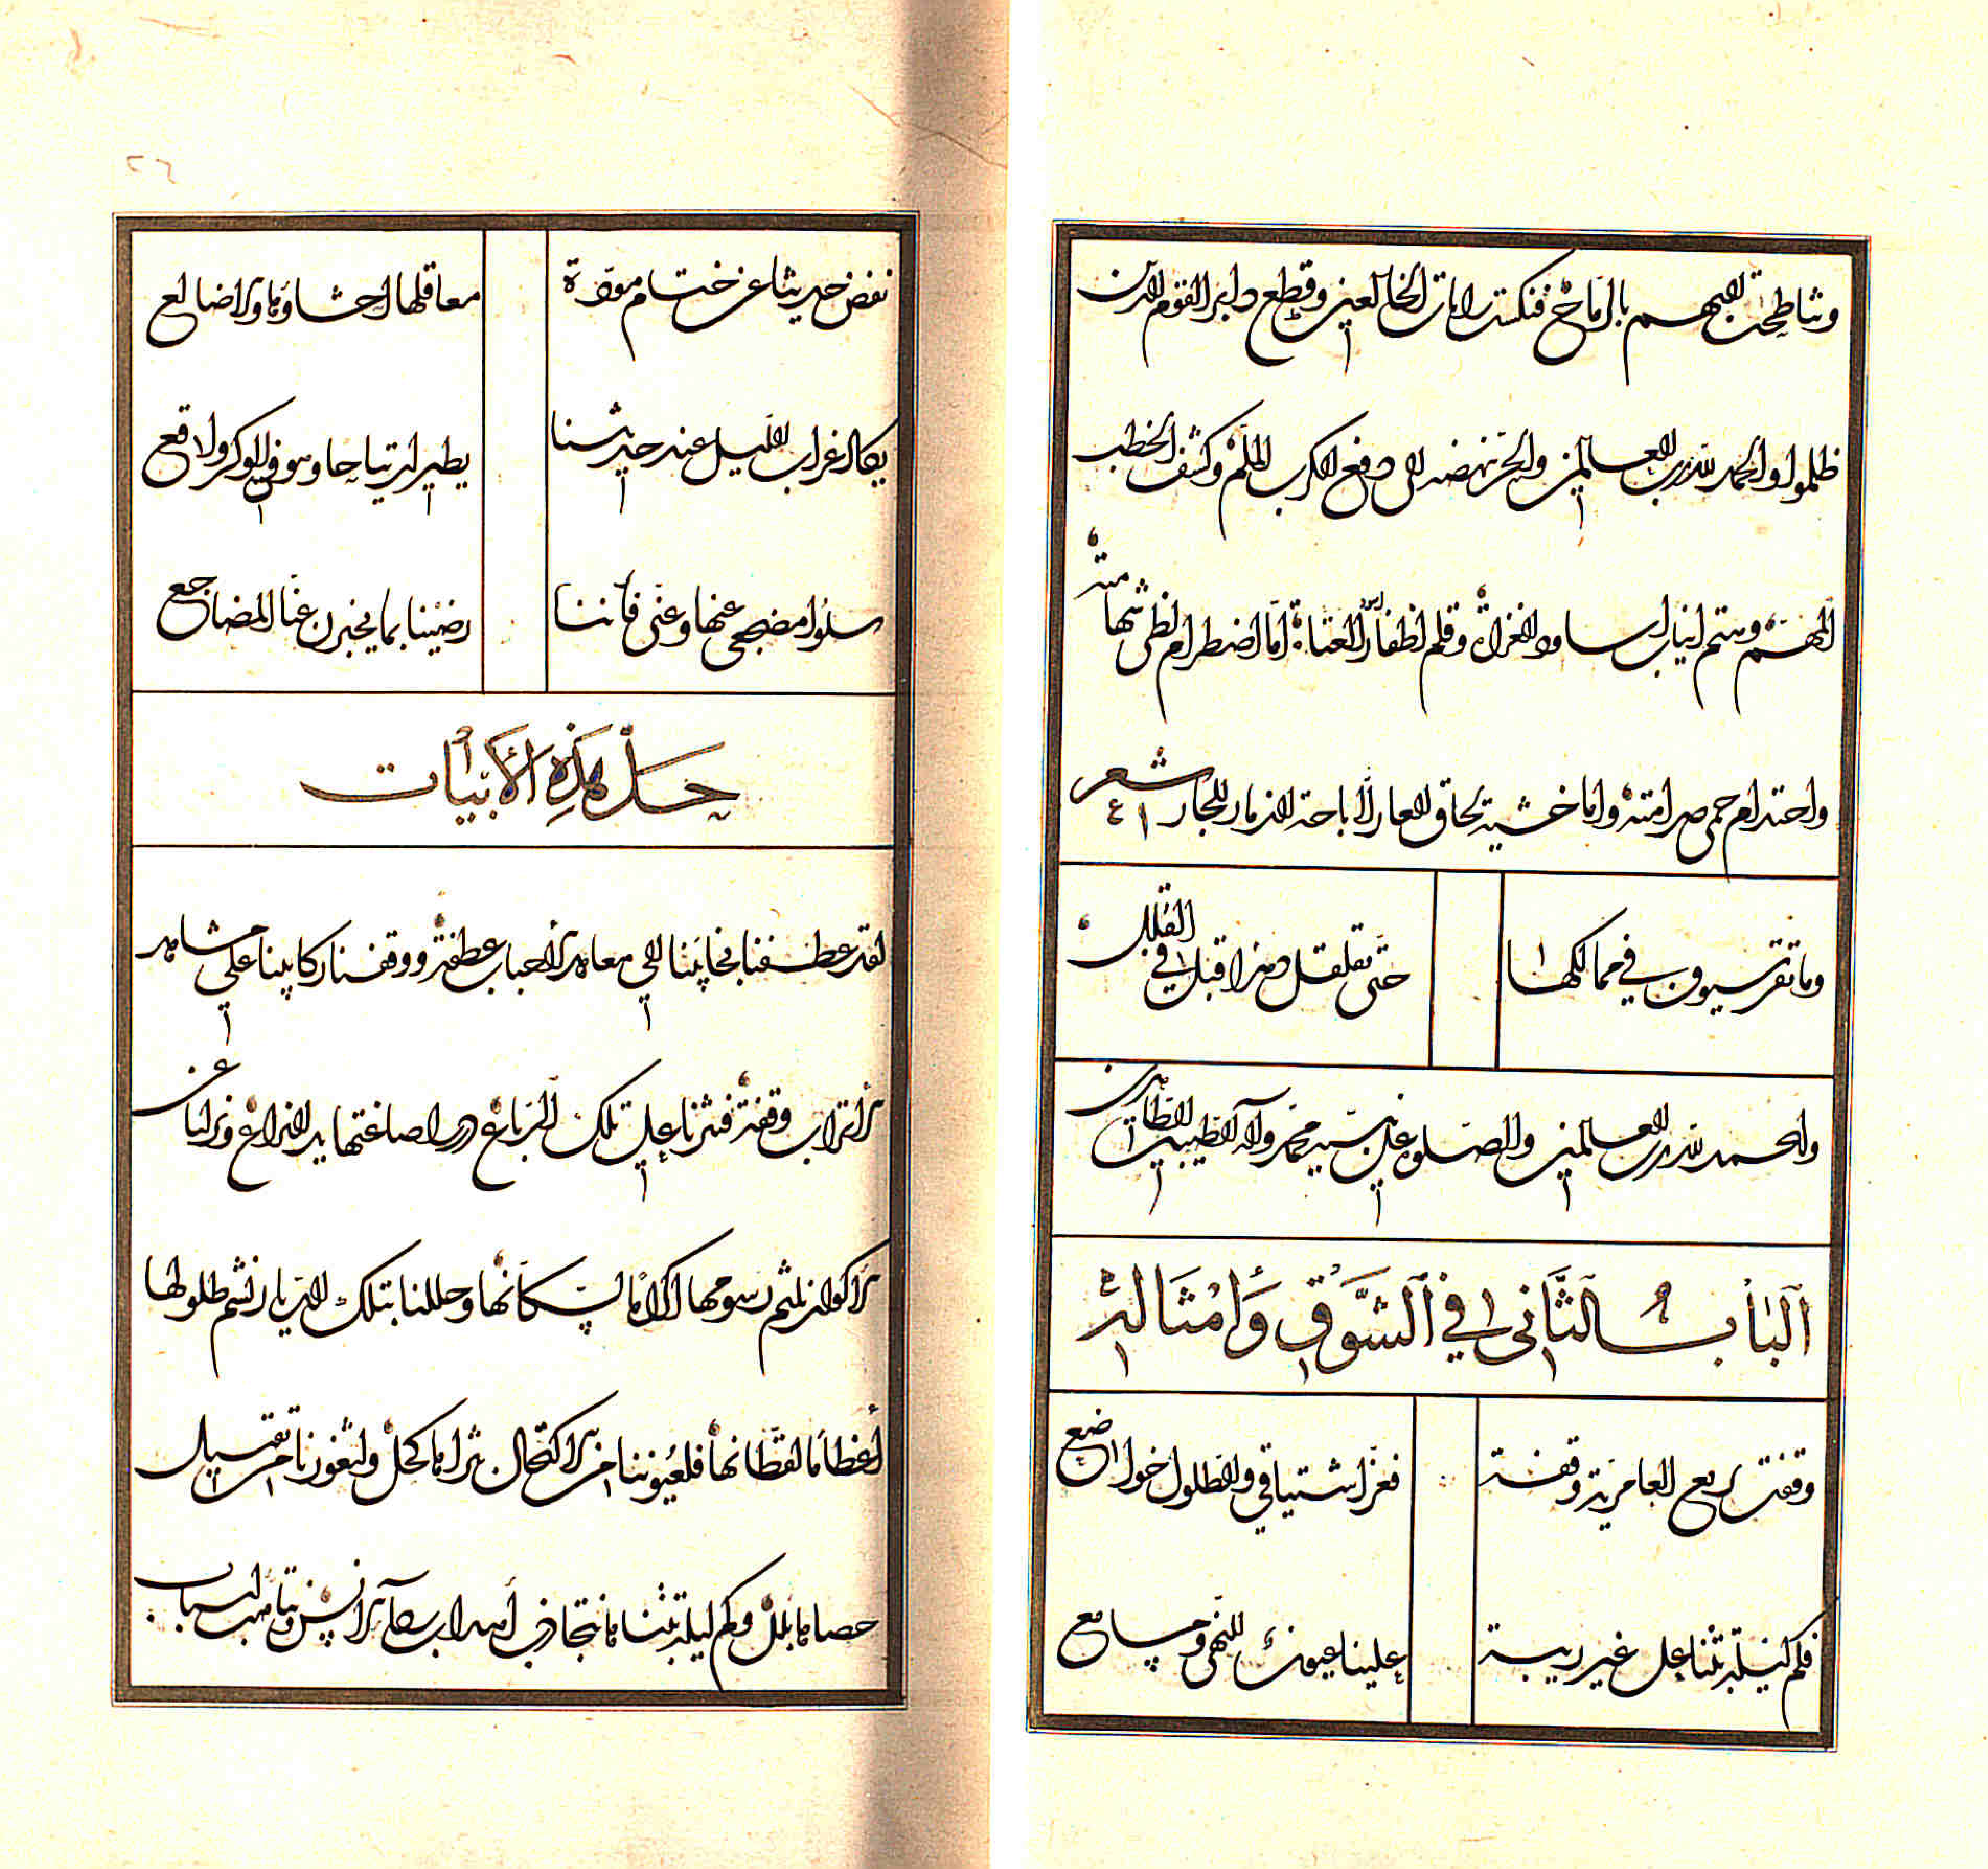 وتناطحت البهم بالرماح فنكست رايات المخالفين وقطع دابر القوم الذين
ظلموا والحمد لله رب العالمين والخير نهضه الى دفع الكرب الملم وكشف الخطب
المهم وهتم انياب اساود الغزاة وقلم اظفار العتاة اما اضطرام لظى شهامته
واحتدام حمى صرامته واما خشية لحاق العار لاباحة الذمار للجار شعر
وما تقر سيوف في ممالكها حتى تقلقل دهرا قبل في القلل
والحمد لله رب العالمين والصلوة على نبيه محمد وآله الطيبين الطاهرين
الباب الثاني في الشوق وامثاله
وقفت بربع العامرية وقفة فعز اشتياقي والطلول خواضع
فكم ليلة بتنا على غير ريبة علينا عيون للنهى ومسامع
نفض حديثا عن ختام مودة معاقلها احشاؤنا والاضالع
يكاد غراب الليل عند حديثنا يطير ارتياحا وهو في الوكر واقع
سلوا مضجعي عنها وعني فاننا رضينا بما يخبرن عنا المضاجع
حل هذه الابيات
لقد عطفنا نجائبنا الى معاهد الاحباب عطفة ووقفنا ركائبنا على مشاهد
الاتراب وقفة فنثرنا على تلك الرباع در اصاغتها يد النزاع ونزلنا عن
الاكوار نلثم رسومها اكراما لسكانها وحللنا بتلك الديار نشم طلولها
اعظاما لقطانها فلعيوننا من الاكتحال بثراها كحل ولثغورنا من تقبيل
حصاها بلل وكم ليلة بتنا نتجاذب اهداب الانس